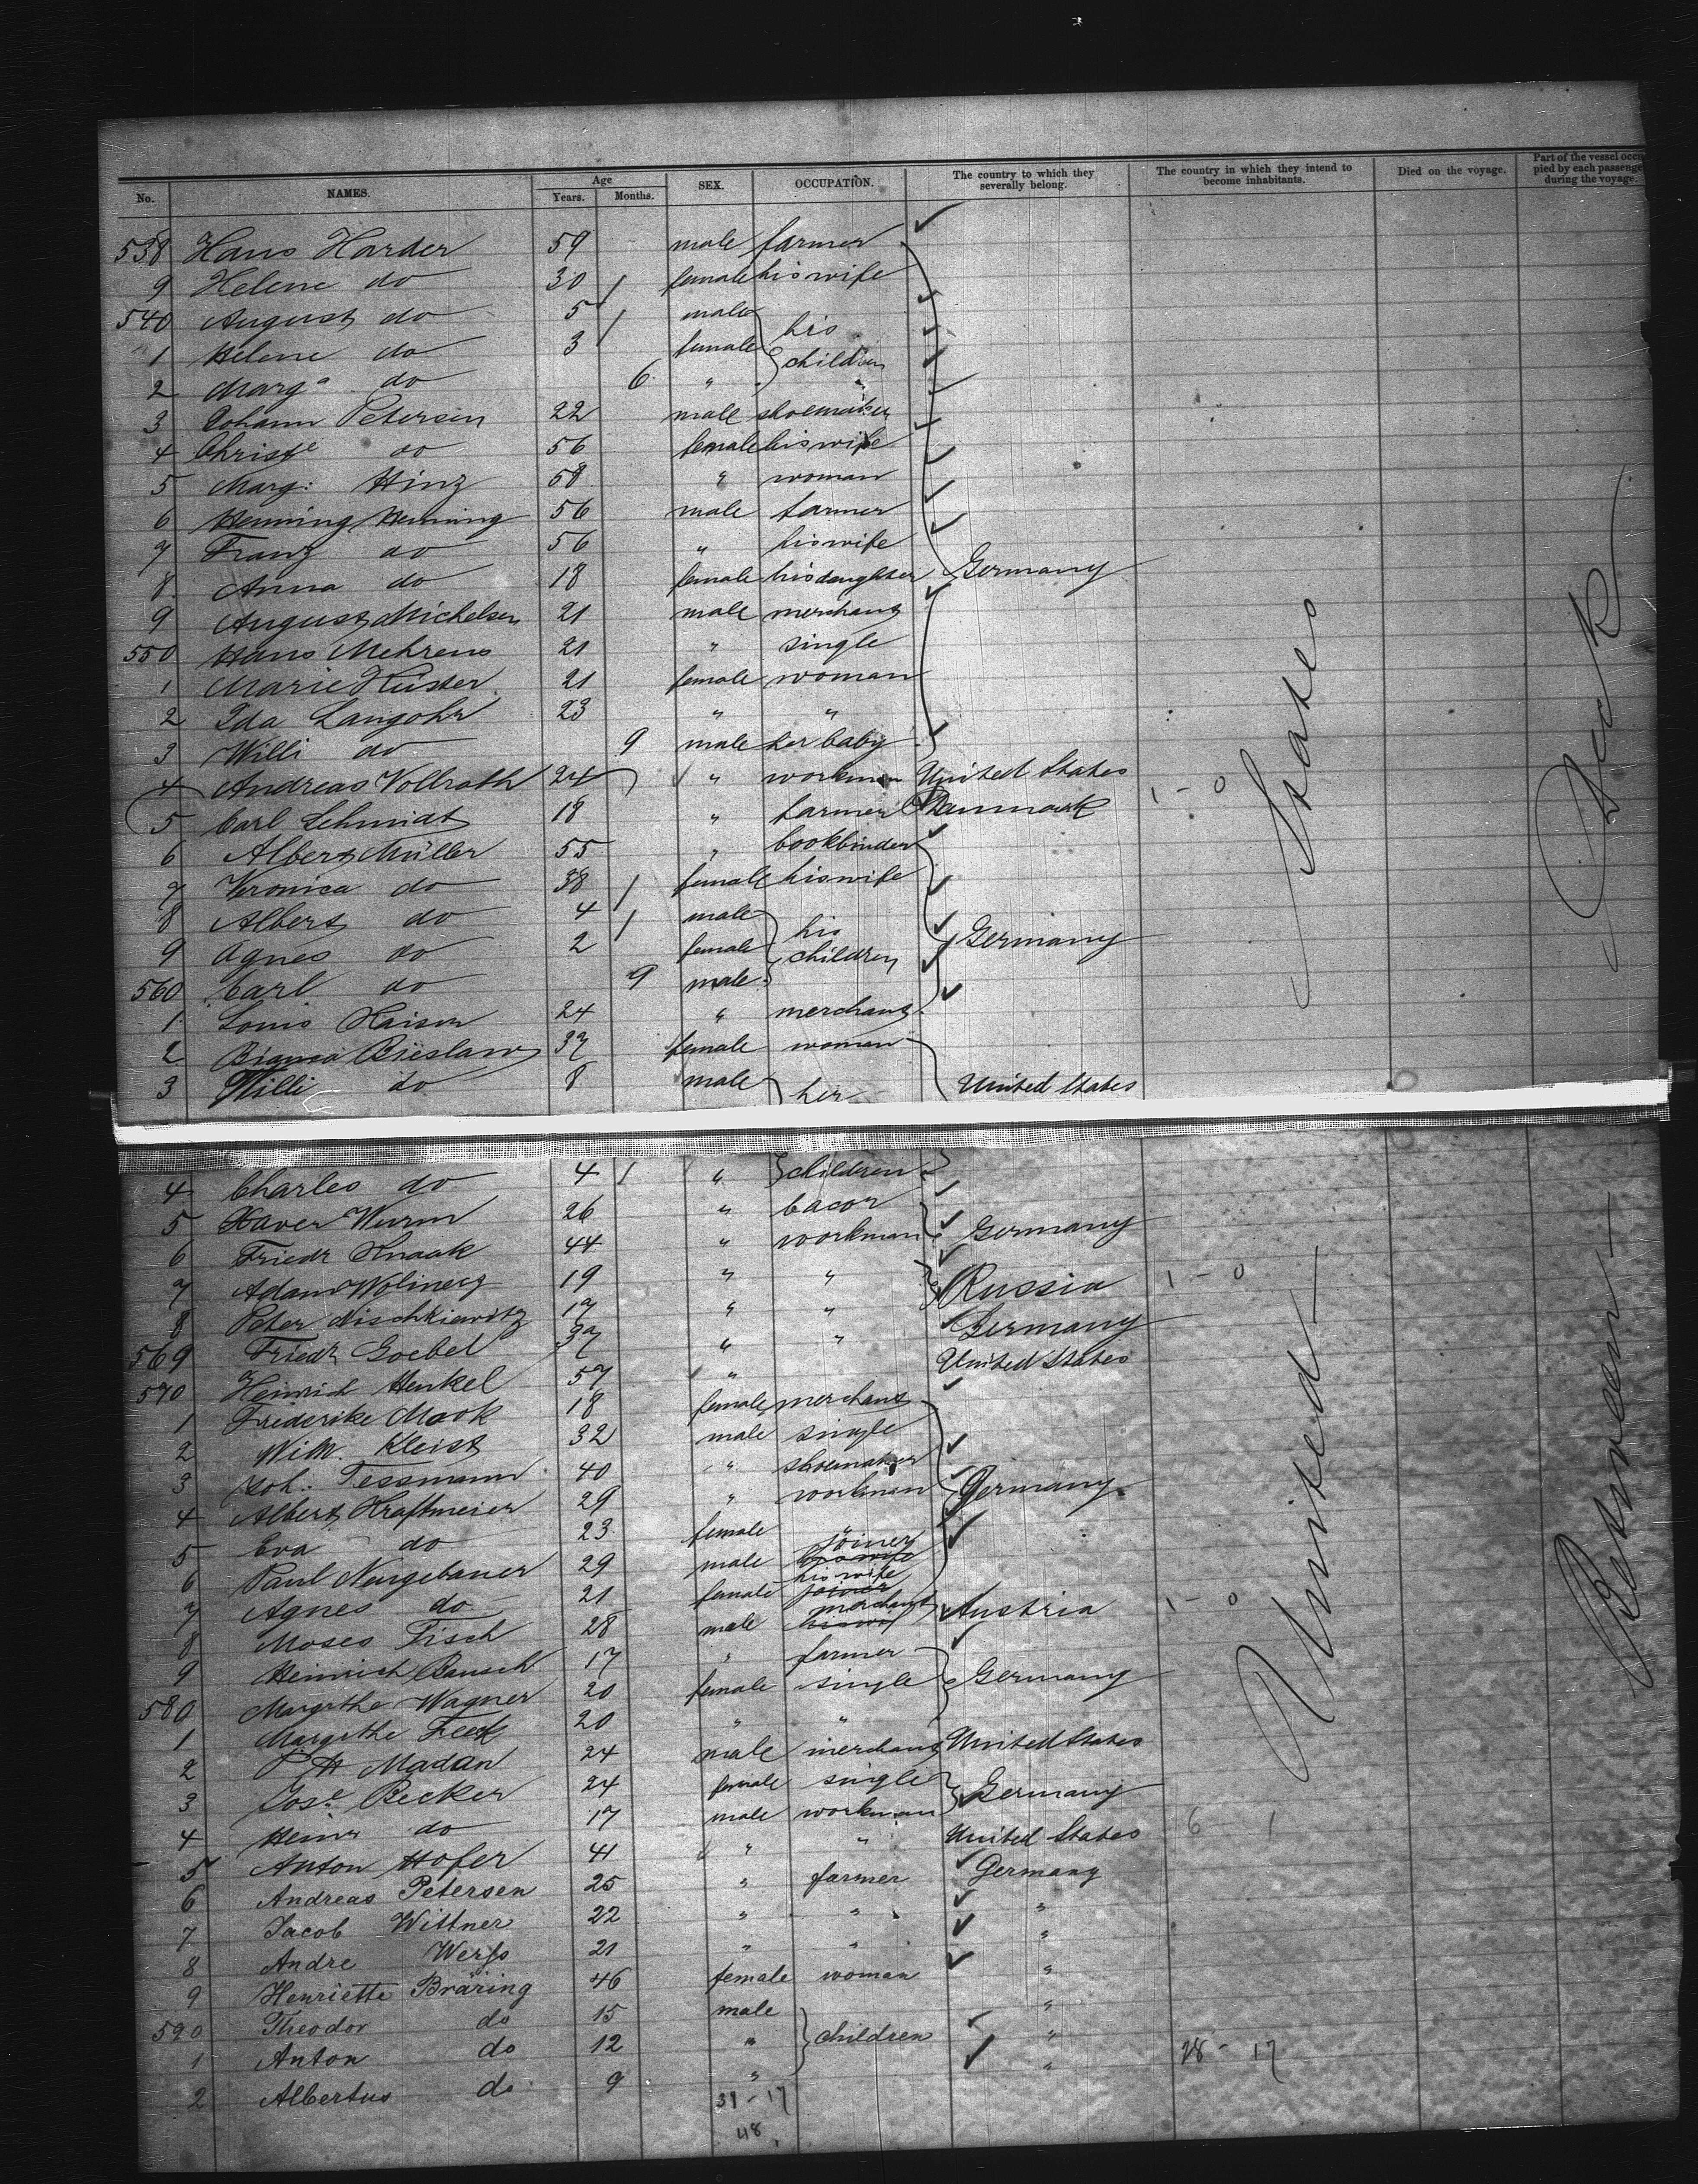 No. NAMES. Age Years. Months. SEX. OCCUPATION. The country to which they severally belong. The country in which they intend to become inhabitants. Died on the voyage. Part of the vessel occupied by each passenger during the voyage.
538 Hans Harder 59 male farmer
9 Helene do 30 female his wife
540 August do 5 male his
1 Helene do 3 female children
2 Marga do 6 " "
3 Johann Petersen 22 male shoemaker
4 Christe do 56 female his wife
5 Marg: Hinz 58 " woman
6 Henning Henning 56 male farmer
7 Franz do 56 " his wife
8 Anna do 18 female his daughter Germany
9 August Michelsen 21 male merchant
550 Hans Mehrens 21 " single
1 Marie Küster 21 female woman
2 Ida Langohr 23 " "
3 Willi do 9 male her baby
4 Andreas Vollrath 24 " workman United States 1 - 0
5 Carl Schmidt 18 " farmer Danmark
6 Albert Müller 55 " bookbinder
7 Veronica do 38 female his wife
8 Albert do 4 male his
9 Agnes do 2 female children Germany
560 Carl do 9 male
1 Louis Kaiser 24 " merchant
2 Bianca Bieslaw 37 female woman
3 Willi do 8 male her United States
4 Charles do 4 " children
5 Xaver Wurm 26 " bacor
6 Friedr Knaak 44 " workman Germany
7 Adam Wolinecz 19 " "
8 Peter Mischkiewitz 17 " " Russia 1 - 0
569 Friedr Goebel 37 " " Germany
570 Heinrich Henkel 57 " United States
1 Frederike Mook 18 female merchant
2 Wilh. Kleist 32 male single
3 Joh: Tessmann 40 " shoemaker
4 Albert Kraftmeier 29 " workman Germany
5 Eva do 23 female "
6 Paul Neugebauer 29 male joiner
7 Agnes do 21 female his wife
8 Moses Fisch 28 male merchant Austria 1 - 0
9 Heinrich Bausch 17 " farmer
580 Margrthe Wagner 20 female single Germany
1 Margrthe Feek 20 " "
2 Madan 24 male merchant United States
3 Jose Becker 24 female single Germany
4 Heinr do 17 male workman
5 Anton Hofer 41 " " United States 6 1
6 Andreas Petersen 25 " farmer Germany
7 Jacob Wittner 22 " " "
8 Andre 21 " " "
9 Henriette Bräring 46 female woman "
590 Theodor do 15 male "
1 Anton do 12 " children "
2 Albertus do 9 " " 28 - 17
31 - 17
48
United States
Between Deck